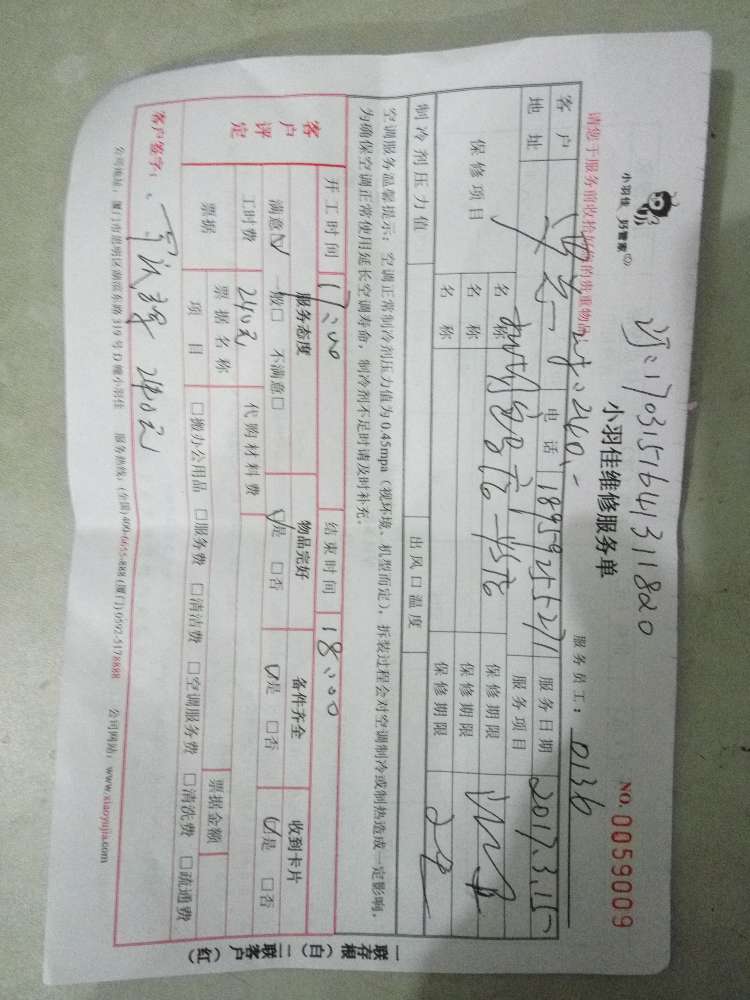 小羽佳 好管家
17031516431 1820
小羽佳维修服务单
NO. 0059009
请您于服务前收拾好您的贵重物品
240.-
服务员工: 0136
客户
电话 18959255271
服务日期 2017.3.15
地址
服务项目
保修项目
名称
保修期限
名称
保修期限
名称
保修期限
制冷剂压力值
出风口温度
空调服务温馨提示:空调正常制冷剂压力值为0.45mpa(视环境、机型而定),拆装过程会对空调制冷或制热造成一定影响,
为确保空调正常使用延长空调寿命,制冷剂不足时请及时补充。
开工时间 17:00 结束时间 18:00
客户评定
服务态度 物品完好 备件齐全 收到卡片
满意☑ 一般□ 不满意□ ☑是 □否 ☑是 □否 ☑是 □否
工时费 240元 代购材料费
票据 票据名称 票据金额
项目 □搬办公用品 □服务费 □清洁费 □空调服务费 □清洗费 □疏通费
客户签字: 240元
公司地址:厦门市思明区湖滨东路319号D幢小羽佳 服务热线:(全国)400-6655-888 (厦门)0592-5178888 公司网站:www.xiaoyujia.com
一联存根(白) 二联客户(红)